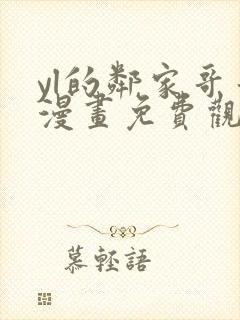 yl的鄰家哥
漫畫免費觀
慕輕語